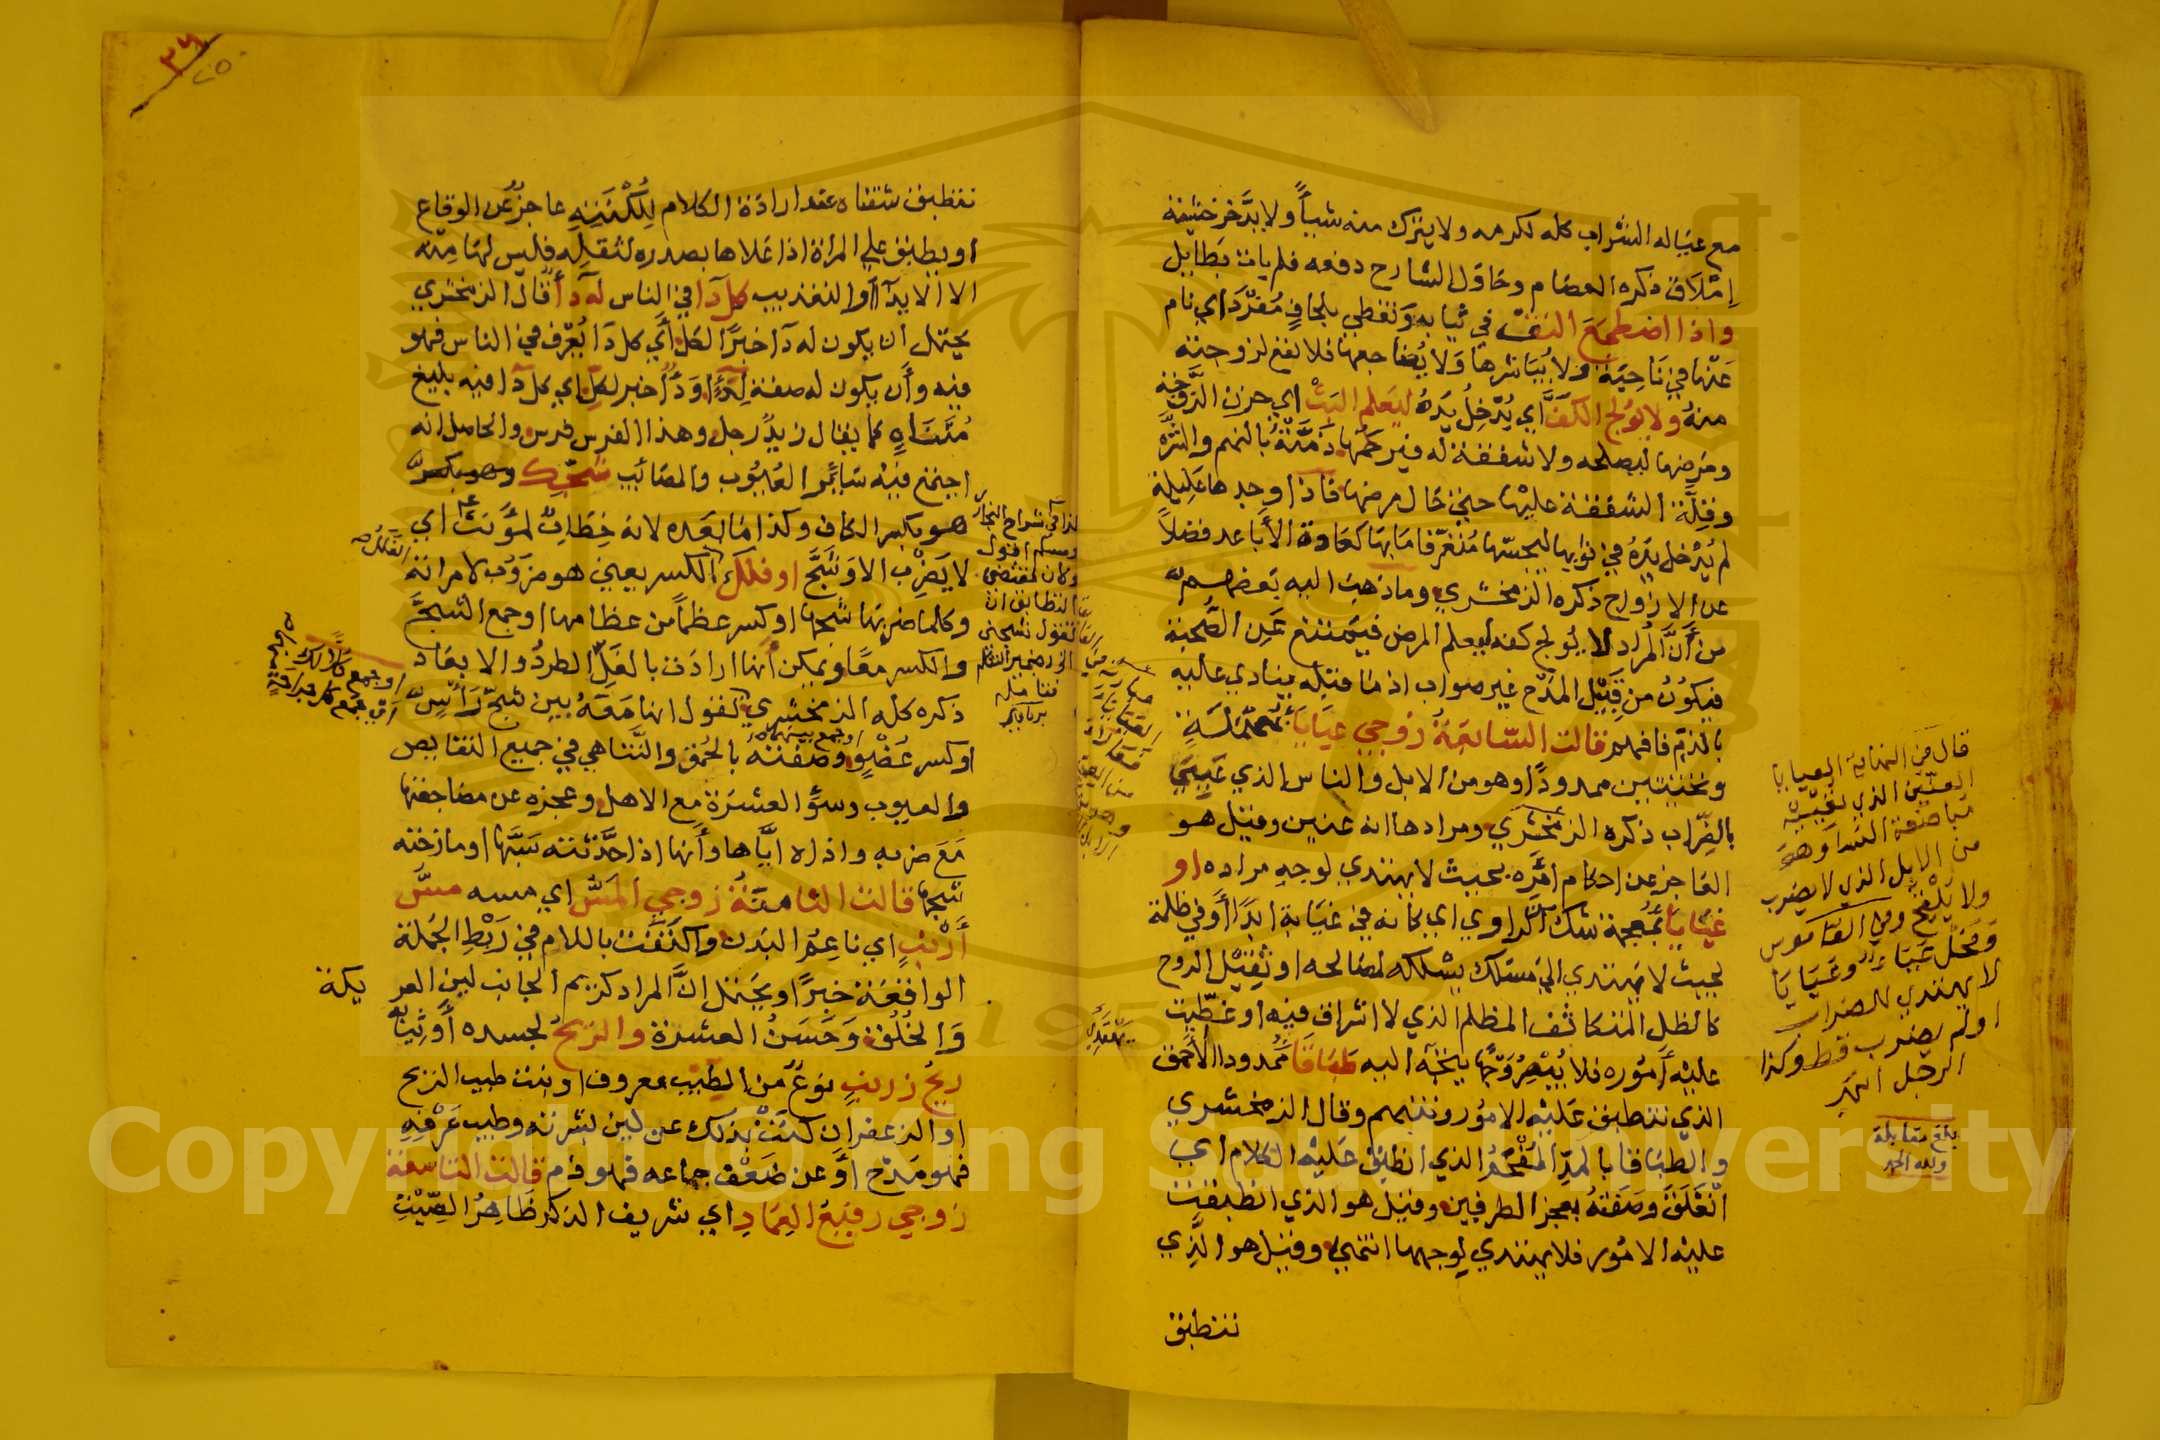 مع عياله الشراب كله لكرمه ولا يترك منه شيأ ولا يدخر خشية
إملاق ذكره العصام وحاول الشارح دفعه فلم يات بطايل
واذا اضطجع التف في ثيابه وتغطي بلحاف مفردا اي نام
عنها في ناحية ولا يباشرها ولا يضاجعها فلا نفع لزوجته
منه ولا يولج الكف اي يدخل يده ليعلم البث اي حزن الزوجة
ومرضها ليصلحه ولا شفقة له فيرحمها ذمته بالنهم والشره
وقلة الشفقة عليها حتي حال مرضها فاذا وجدها عليلة
لم يدخل يده في ثوابها ليجسها متعرفا ما بها كعادة الأباعد فضلا
عن الازواج ذكره الزمخشري وما ذهب اليه بعضهم
من أن المراد لا يولج كفه ليعلم المرض فيمتنع عن الصحبة
فيكون من قبيل المدح غير صواب اذ ما قبله ينادي عليه
بالذم فافهم قالت السابعة زوجي عيايا بمهملة
وتحتيتين ممدودا وهو من الابل والناس الذي عيي
بالضراب ذكره الزمخشري ومرادها انه عنين وقيل هو
العاجز عن احكام أمره بحيث لا يهتدي لوجه مراده او
غيايا بمعجمة شك الراوي اي كانه في غياية ابدا أو في ظلمة
بحيث لا يهتدي الي مسلك يسلكه لمصالحه او ثقيل الروح
كالظل المتكاثف المظلم الذي لا اشراق فيه او غطيت
عليه أموره فلا يبصر وجها يتجه اليه طباقا ممدودا الأحمق
الذي تنطبق عليه الامور وتنبهم وقال الزمخشري
والطباقا بالمد المفحم الذي انطبق عليه الكلام اي
انغلق وصفته بعجز الطرفين وقيل هو الذي انطبقت
عليه الامور فلا يهتدي لوجهها انتهي وقيل هو الذي
تنطبق
قال في النهاية العيايا
العنين الذي تعييه
مباضعة النسا وهو
من الابل الذي لا يضرب
ولا يلقح وفي القاموس
وفحل عياء وعيايا
لا يهتدي للضراب
او لم يضرب قط وكذا
الرجل
بلغ مقابلة
ولله الحمد
٢٥
تنطبق شفتاه عند ارادة الكلام للكنته عاجز عن الوقاع
او ينطبق علي المراة اذا علاها بصدره لثقله فليس لها منه
الا الايذاء والتعذيب كل دا في الناس له دا قال الزمخشري
يحتمل أن يكون له دا خبرا لكل أي كل دا يعرف في الناس فهو
فيه وأن يكون له صفة لداء و داء خبر لكل اي كل دا فيه بليغ
متناه كما يقال زيد رجل وهذا الفرس فرس والحاصل انه
اجتمع فيه ساير العيوب والمصائب شجك
هو بكسر الكاف وكذا ما بعده لانه خطاب لمؤنث اي
لا يضرب الا وشج او فلك الكسر يعني هو ضروب لامراته
وكلما ضربها شجها او كسر عظما من عظامها او جمع الشج
والكسر معا ويمكن أنها ارادت بالفل الطرد والابعاد
ذكره كله الزمخشري كقول انها معه بين شج رأس
او كسر عضو وصفته بالحمق والتناهي في جميع النقايص
والعيوب وسؤ العشرة مع الاهل وعجزه عن مضاجعتها
مع ضربه واذاه اياها وأنها اذا حدثته سبها او مازحته
شجها قالت الثامنة زوجي المس اي مسه مس
أرنب اي ناعم البدن واكتفت باللام في ربط الجملة
الواقعة خبرا ويحتمل ان المراد كريم الجانب لين العريكة
والخلق وحسن العشرة والريح لجسده أو ثيابه
ريح زرنب نوع من الطيب معروف او نبت طيب الريح
او الزعفران كنت بذلك عن لين بشرته وطيب عرقه
فهو مدح أو عن ضعف جماعه فهو ذم قالت التاسعة
زوجي رفيع العماد اي شريف الذكر ظاهر الصيت
او جمع كلا لك
اي جمع كل